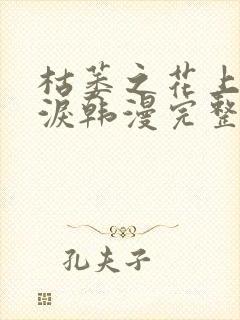 枯萎之花上
泪韩漫完整
孔夫子